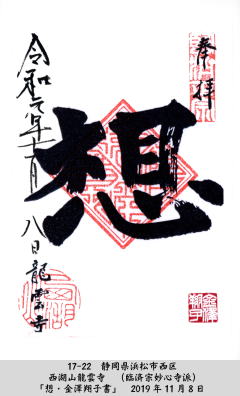 奉拝
想
令和元年十一月八日龍雲寺
金澤翔子
17-22 静岡県浜松市西区
西湖山龍雲寺 (臨済宗妙心寺派)
「想・金澤翔子書」 2019年11月8日